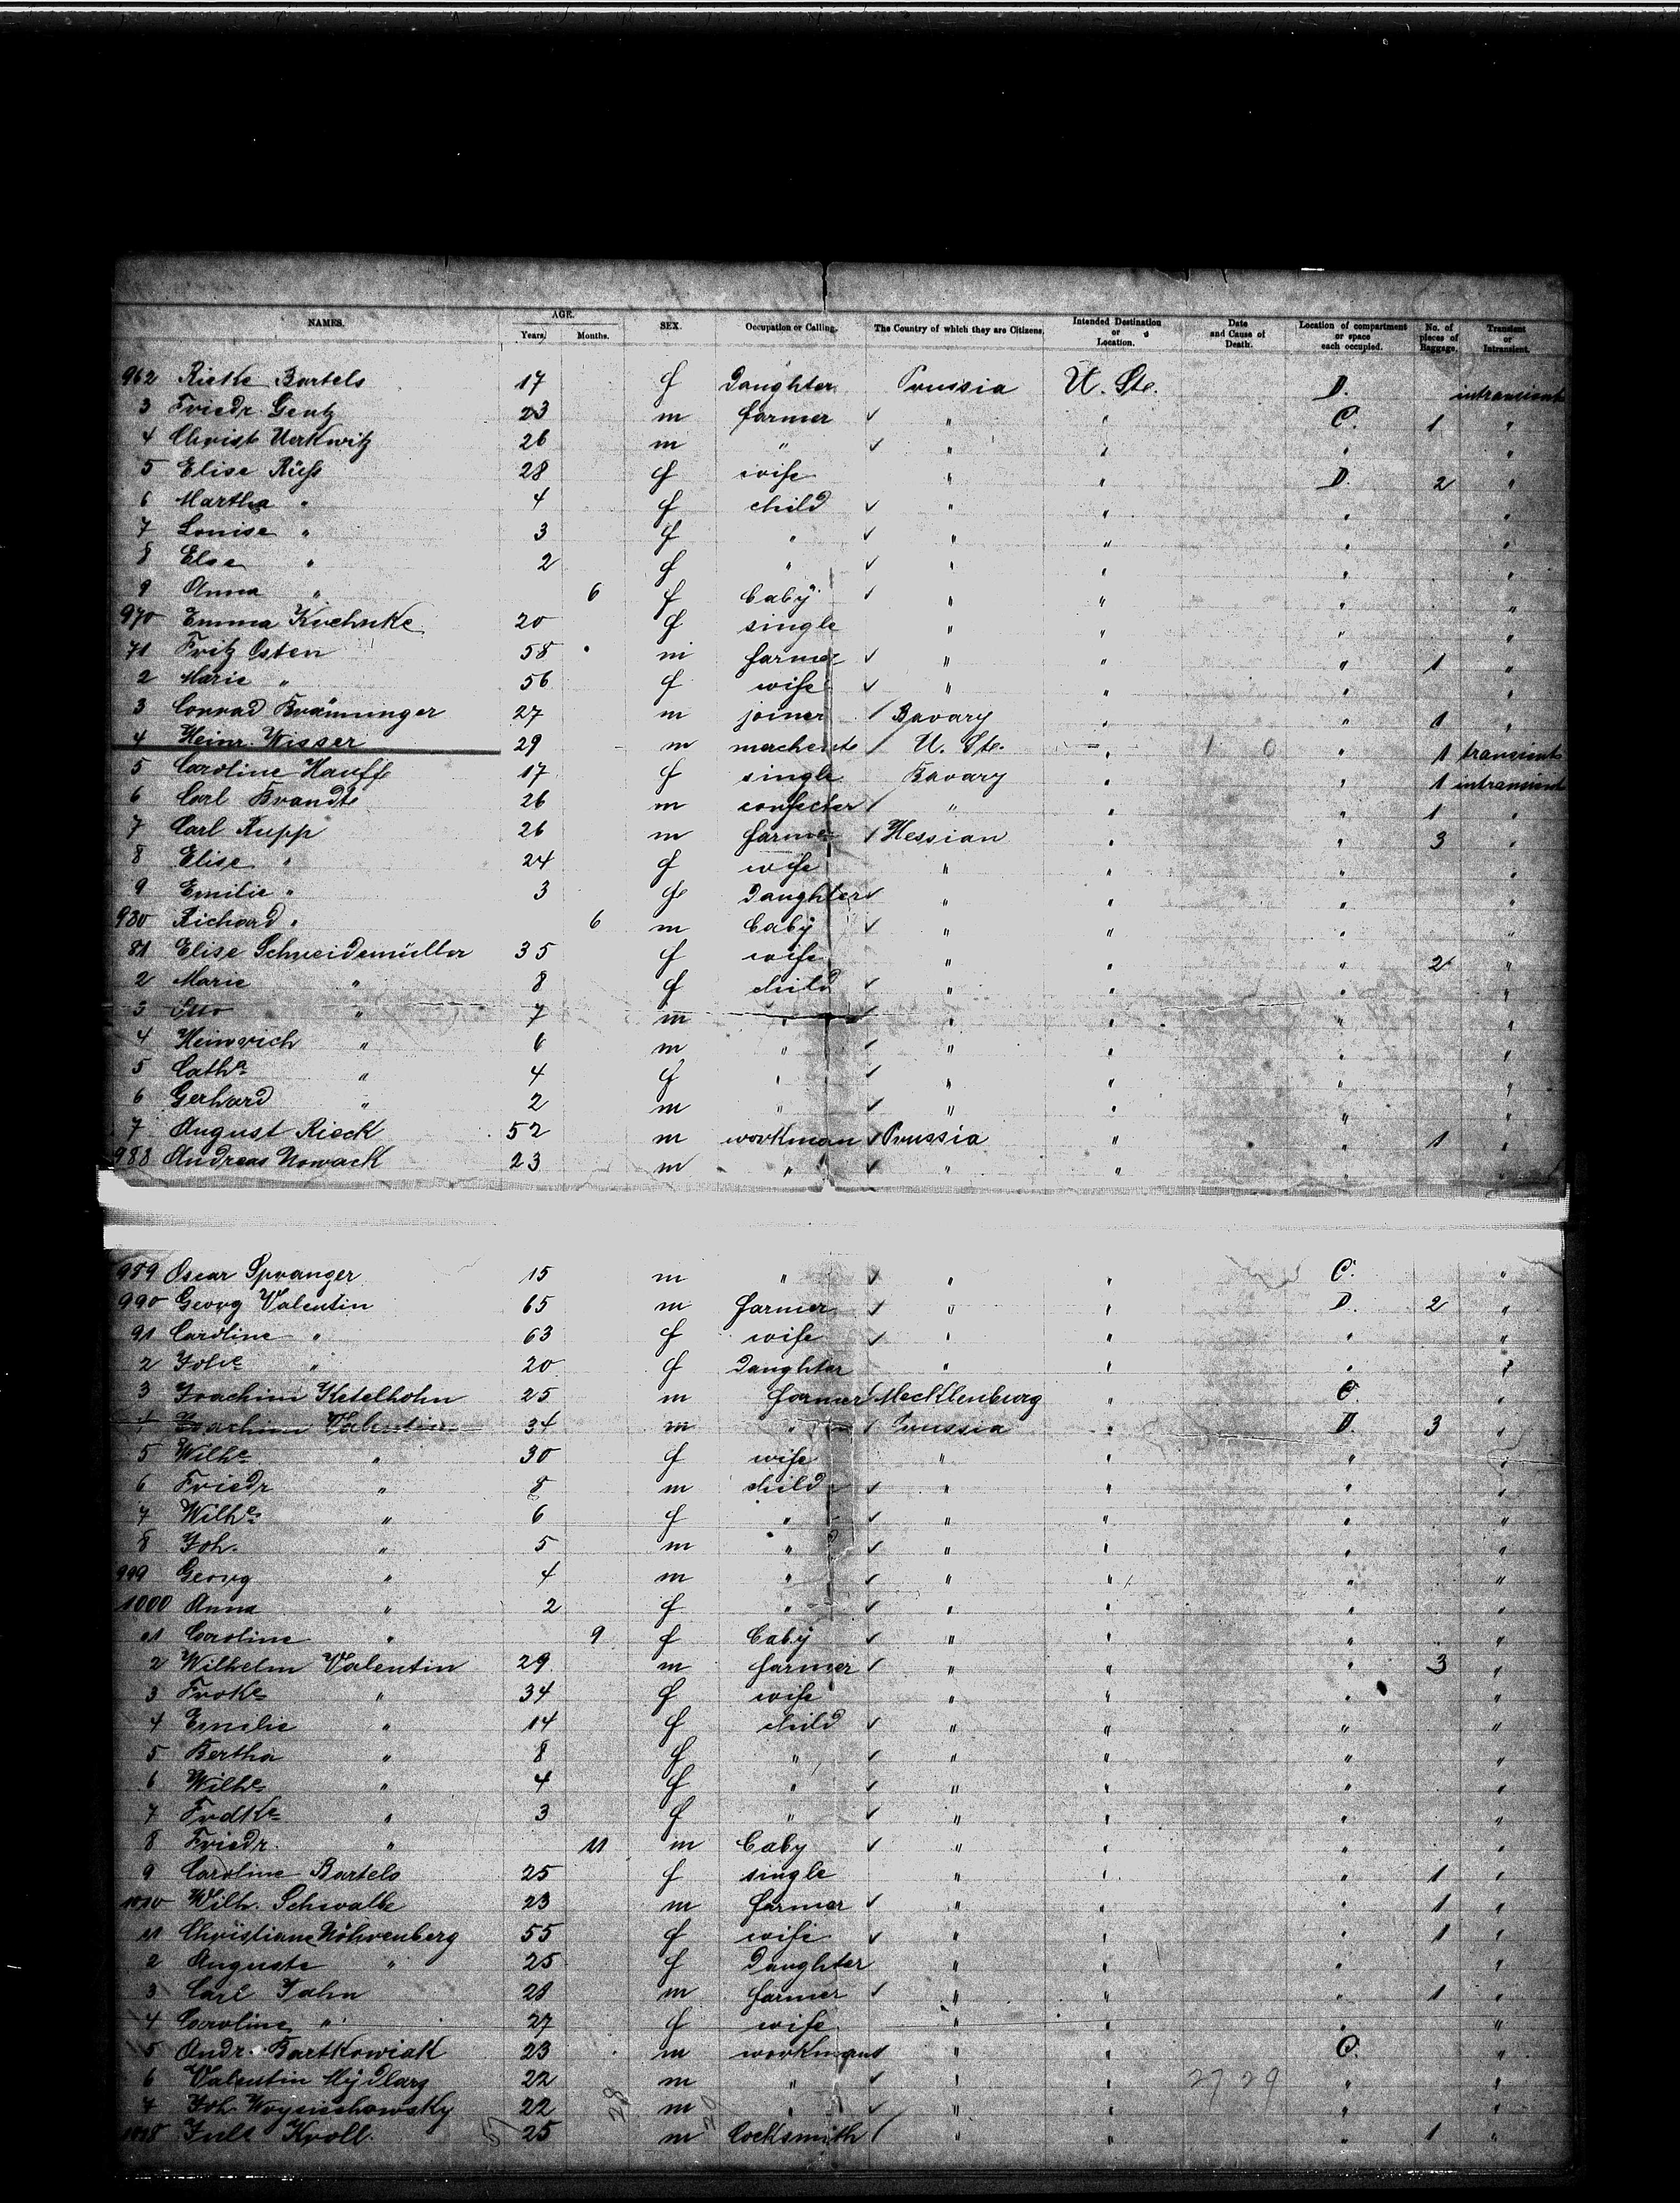 NAMES. AGE. Years. Months. SEX. Occupation or Calling. The Country of which they are Citizens. Intended Destination or Location. Date and Cause of Death. Location of compartment or space each occupied. No. of pieces of Baggage. Transient or Intransient.
962 Rieke Bartels 17 f Daughter Prussia U. Sts. D. intransient
3 Friedr. Gentz 23 m farmer ✓ " " C. 1 "
4 Christ Uerkwitz 26 m " ✓ " " " "
5 Elise Rüß 28 f wife " " D. 2 "
6 Martha " 4 f child ✓ " " " "
7 Louise " 3 f " ✓ " " " "
8 Else " 2 f " ✓ " " " "
9 Anna " 6 f baby ✓ " " " "
970 Emma Kuehnke 20 f single " " " "
71 Fritz Osten 58 m farmer ✓ " " " 1 "
2 Marie " 56 f wife ✓ " " " "
3 Conrad Bräuninger 27 m joiner / Bavary " " 1 "
4 Heinr. Wisser 29 m merchente / U. Sts. " " 1 transient
5 Caroline Hauff 17 f single Bavary " " 1 intransient
6 Carl Brandt 26 m confecter / " " " 1 "
7 Carl Rupp 26 m farmer / Hessian " " 3 "
8 Elise " 24 f wife " " " "
9 Emilie " 3 f Daughter ✓ " " " "
980 Richard " 6 m baby ✓ " " " "
81 Elise Schneidemüller 35 f wife " " " 2 "
2 Marie " 8 f child ✓ " " " "
3 Otto " 7 m " ✓ " " " "
4 Heinrich " 6 m " ✓ " " " "
5 Cathe " 4 f " ✓ " " " "
6 Gerhard " 2 m " ✓ " " " "
7 August Rieck 52 m workman ✓ Prussia " " 1 "
988 Andreas Nowack 23 m " ✓ " " " "
989 Oscar Spranger 15 m " ✓ " " C. "
990 Georg Valentin 65 m farmer ✓ " " D. 2 "
91 Caroline " 63 f wife ✓ " " " "
2 Johe " 20 f Daughter " " " "
3 Joachim Ketelhohn 25 m farmer / Mecklenburg " C "
4 Joachim Valentin 34 m " / Prussia " D. 3 "
5 Wilhe " 30 f wife " " " "
6 Friedr " 8 m child ✓ " " " "
7 Wilhe " 6 f " ✓ " " " "
8 Joh. " 5 m " ✓ " " " "
999 Georg " 4 m " ✓ " " " "
1000 Anna " 2 f " ✓ " " " "
01 Caroline " 9 f baby ✓ " " " "
2 Wilhelm Valentin 29 m farmer ✓ " " " 3 "
3 " 34 f wife " " " "
4 Emilie " 14 f child ✓ " " " "
5 Bertha " 8 f " ✓ " " " "
6 Wilhe " 4 f " ✓ " " " "
7 Frdke " 3 f " ✓ " " " "
8 Friedr. " 11 m baby ✓ " " " "
9 Caroline Bartels 25 f single " " " 1 "
1010 Wilh. Schwalbe 23 m farmer ✓ " " " 1 "
11 Christiane Nöhrenberg 55 f wife ✓ " " " 1 "
2 Auguste " 25 f Daughter " " " "
3 Carl Jahn 28 m farmer ✓ " " " 1 "
4 Caroline " 27 f wife " " " "
5 Andr. Bartkowiak 23 m workman ✓ " " C. "
6 Valentin 22 m " ✓ " " 27 29 " "
7 Joh. Woyciechowsky 22 m " ✓ " " " "
1018 Jull Kroll. 25 m Locksmith / " " " 1 "